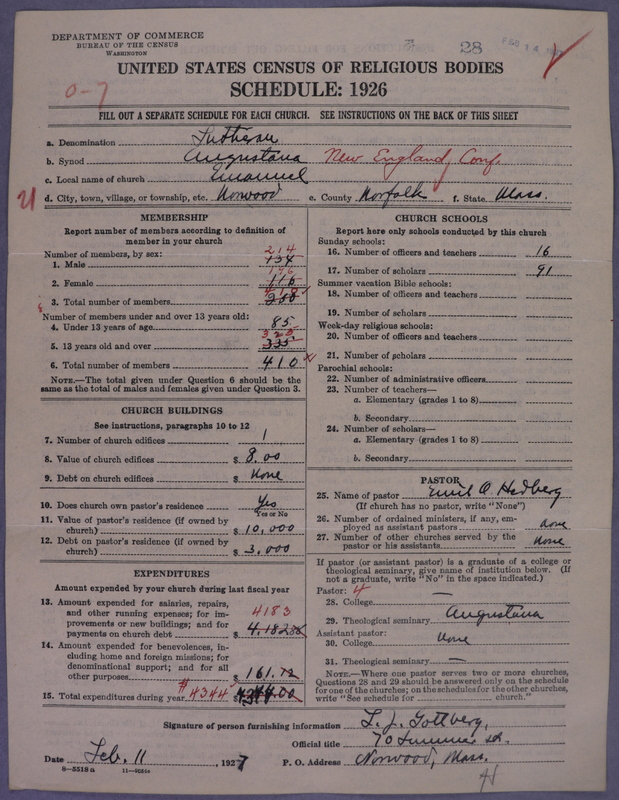 DEPARTMENT OF COMMERCE
BUREAU OF THE CENSUS
WASHINGTON
28
UNITED STATES CENSUS OF RELIGIOUS BODIES
SCHEDULE: 1926
0-7
FILL OUT A SEPARATE SCHEDULE FOR EACH CHURCH. SEE INSTRUCTIONS ON THE BACK OF THIS SHEET
a. Denomination Lutheran
b. Synod Augustana New England Conf.
c. Local name of church Emanuel
d. City, town, village, or township, etc. Norwood e. County Norfolk f. State Mass.
21
MEMBERSHIP
Report number of members according to definition of member in your church
Number of members, by sex:
1. Male 214
2. Female 196
3. Total number of members 410
Number of members under and over 13 years old:
4. Under 13 years of age 85
5. 13 years old and over 325
6. Total number of members 410
NOTE.—The total given under Question 6 should be the same as the total of males and females given under Question 3.
CHURCH BUILDINGS
See instructions, paragraphs 10 to 12
7. Number of church edifices 1
8. Value of church edifices $ 8.00
9. Debt on church edifices $ None
10. Does church own pastor's residence Yes
Yes or No
11. Value of pastor's residence (if owned by church) $ 10,000
12. Debt on pastor's residence (if owned by church) $ 3,000
EXPENDITURES
Amount expended by your church during last fiscal year
13. Amount expended for salaries, repairs, and other running expenses; for improvements or new buildings; and for payments on church debt 4183 $ 4,182
14. Amount expended for benevolences, including home and foreign missions; for denominational support; and for all other purposes $ 161.72
15. Total expenditures during year $4344
CHURCH SCHOOLS
Report here only schools conducted by this church
Sunday schools:
16. Number of officers and teachers 16
17. Number of scholars 91
Summer vacation Bible schools:
18. Number of officers and teachers
19. Number of scholars
Week-day religious schools:
20. Number of officers and teachers
21. Number of scholars
Parochial schools:
22. Number of administrative officers
23. Number of teachers—
a. Elementary (grades 1 to 8)
b. Secondary
24. Number of scholars—
a. Elementary (grades 1 to 8)
b. Secondary
PASTOR
25. Name of pastor Emil O. Hedberg
(If church has no pastor, write "None")
26. Number of ordained ministers, if any, employed as assistant pastors none
27. Number of other churches served by the pastor or his assistants None
If pastor (or assistant pastor) is a graduate of a college or theological seminary, give name of institution below. (If not a graduate, write "No" in the space indicated.)
Pastor: 4
28. College —
29. Theological seminary Augustana
Assistant pastor:
30. College None
31. Theological seminary —
NOTE.—Where one pastor serves two or more churches, Questions 28 and 29 should be answered only on the schedule for one of the churches; on the schedules for the other churches, write "See schedule for church."
Signature of person furnishing information L. J. Gottberg,
Official title 70
Date Feb. 11, 1927 P. O. Address Norwood, Mass.
8—5518 a